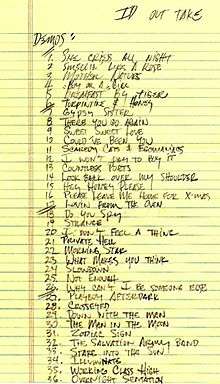 OUT TAKE
DEMOS:
1. SHE CRIES ALL NIGHT
2. LIKE A ROSE
3. MOTHER NATURE
4. BOY OR A GIRL
5. BREAKFAST BY TIGER
6. TURPINTINE & HONEY
7. GYPSY SISTER
8 THERE YOU GO AGAIN
9 SWEET SWEET LOVE
10 COULD'VE BEEN YOU
11 CATS &
12 I WON'T PAY TO BUY IT
13 COUNTLESS PORTS
14 LOOK BACK OVER MY SHOULDER
15 HEY HONEY PLEASE!
16 PLEASE LEAVE ME HOME FOR X-MAS
17 LOVIN' FROM THE OVEN
18 DO YOU SPY
19 STRANGE
20 I DON'T FEEL A THING
21 PRIVATE HELL
22 MORNING STAR
23 WHAT MAKES YOU THINK
24 SLOWDOWN
25 NOT ENOUGH
26 WHY CAN'T I BE SOMEONE ELSE
27. PLAYBOY AFTERDARK
28. CASSETTED
29. DOWN WITH THE MAN
30. THE MAN IN THE MOON
31. ZODIAC SIGN
32. THE SALVATION ARMY BAND
33. STARE INTO THE SUN!
34.
35. WORKING CLASS HIGH
36. OVERNIGHT SENSATION